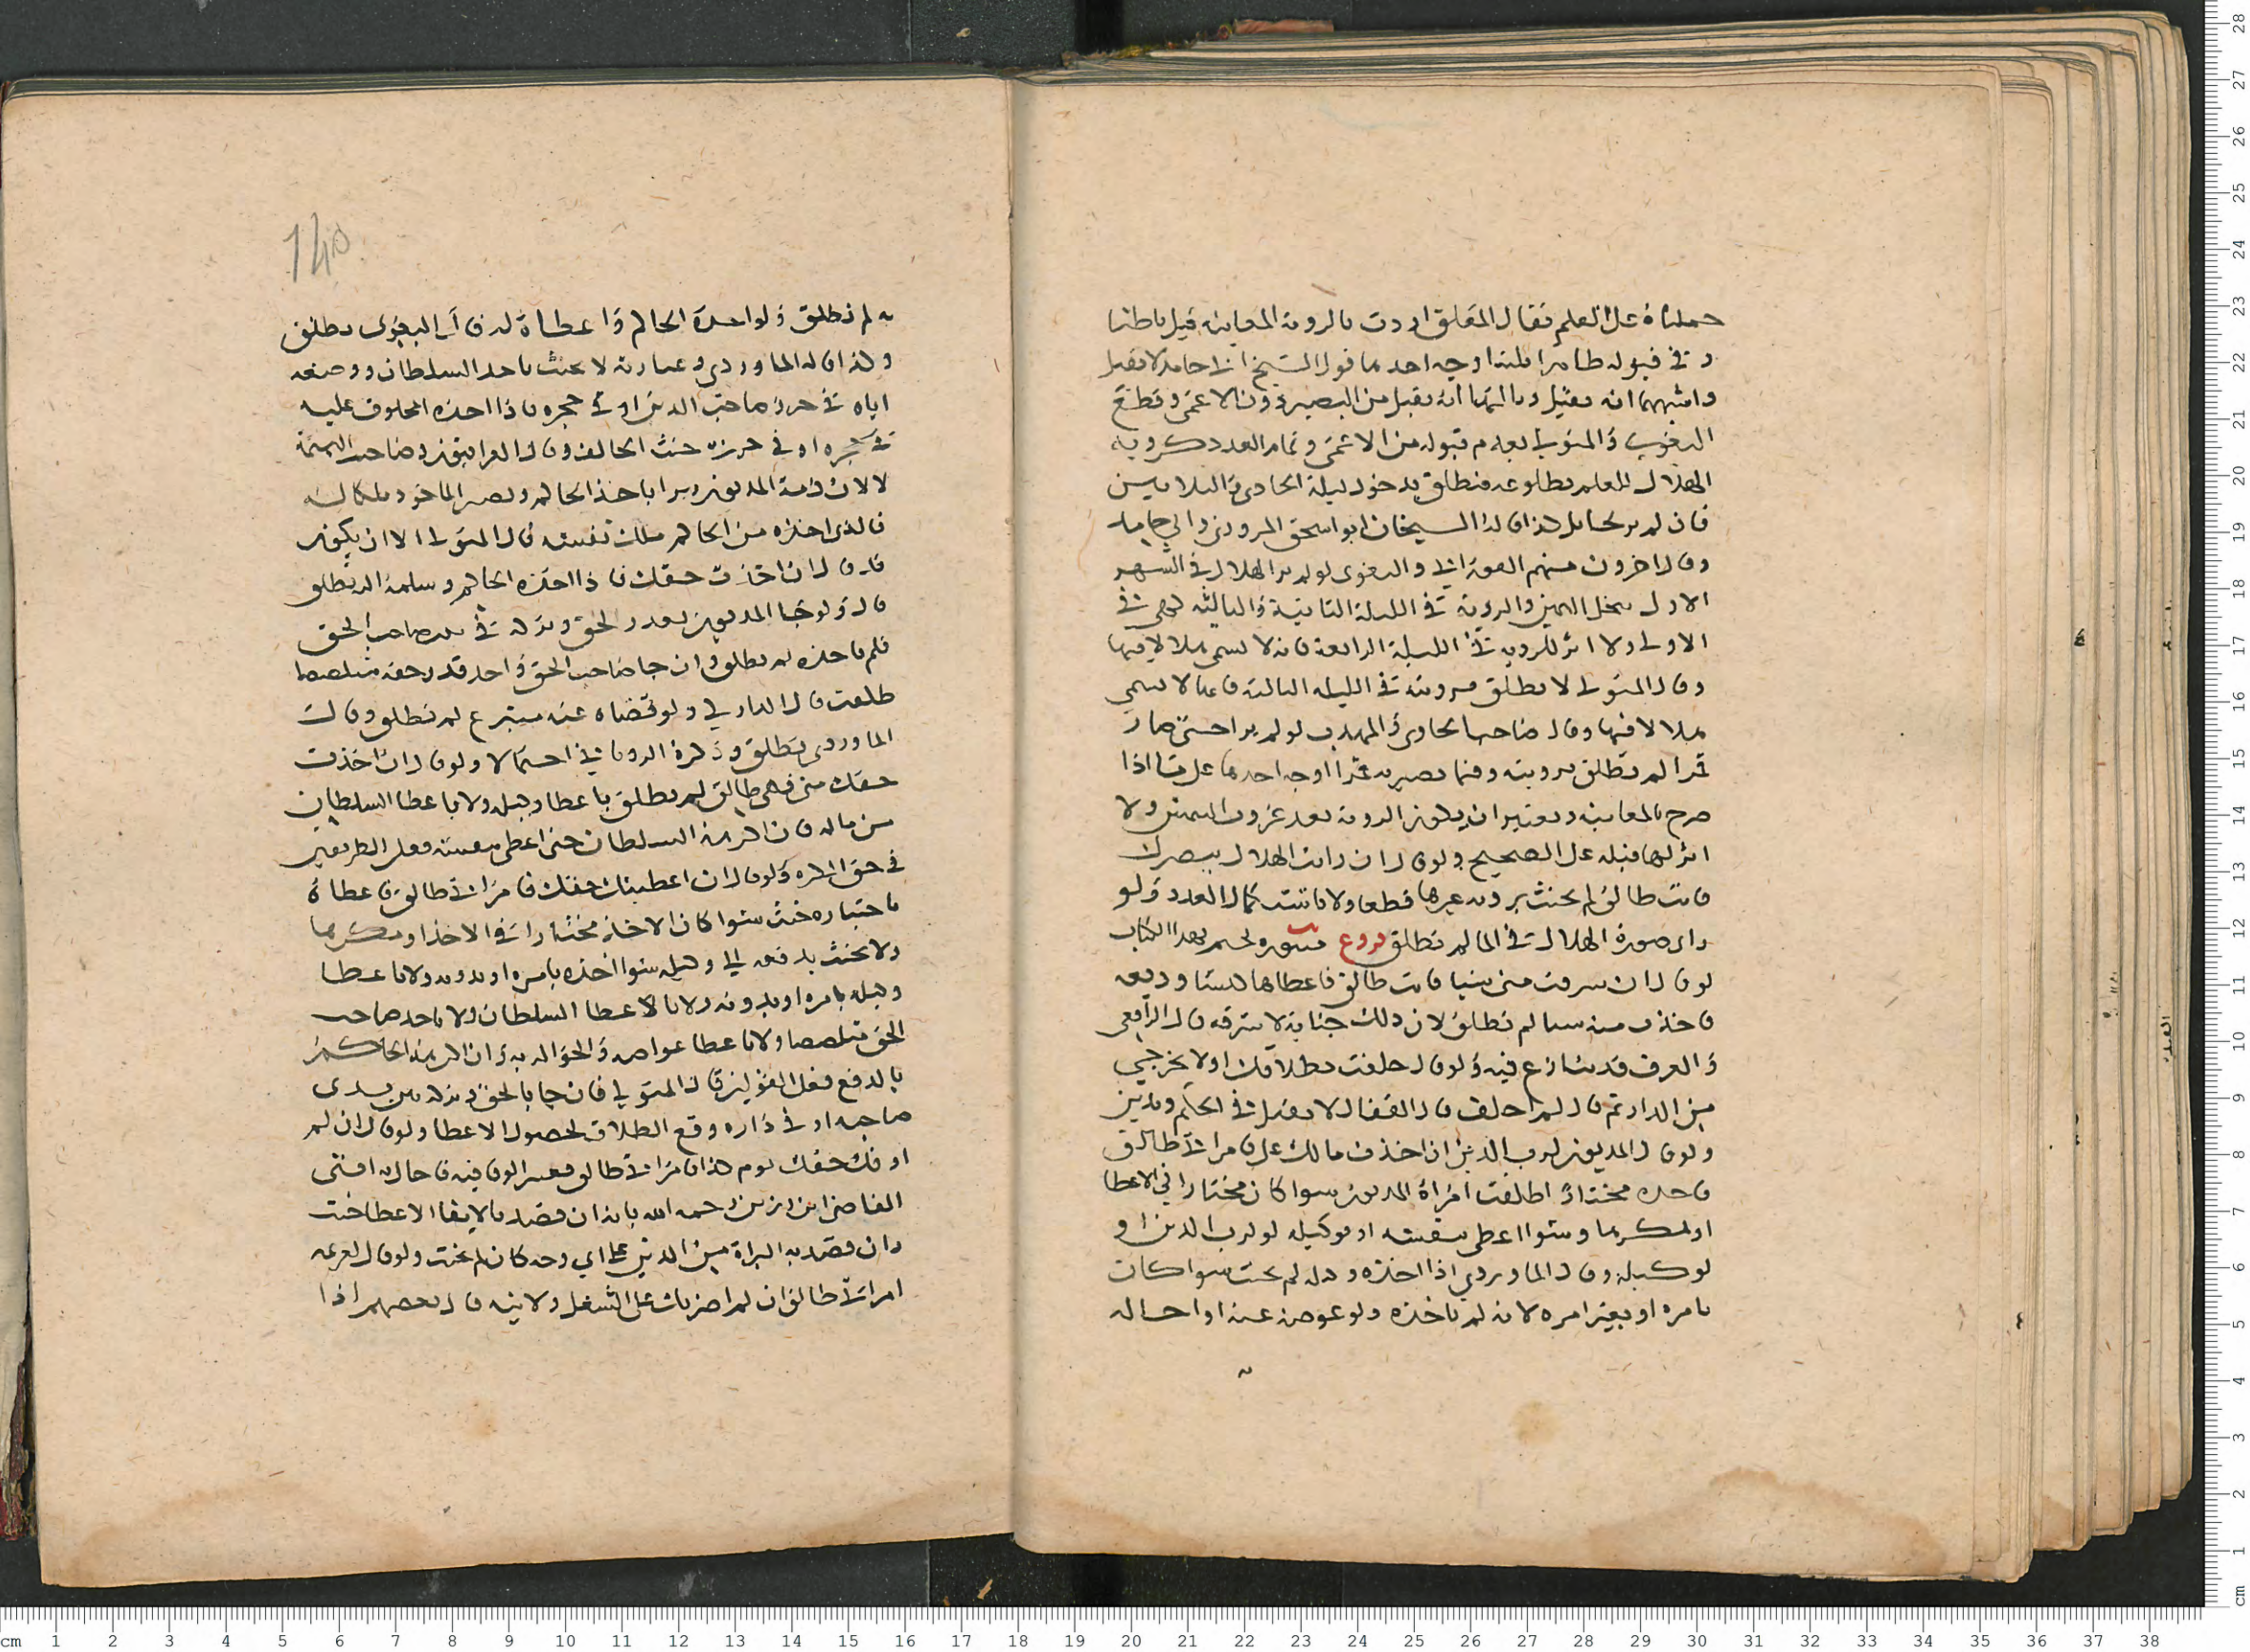 حملناه على العلم فقال المعلق اردت بالروية المعاينة قبل باطنا
و في قبوله ظاهرا ثلثة اوجه احدها قول الشيخ ابي حامد لا يقبل
واشبههما انه يقبل وثالثها انه يقبل من البصير دون الاعمى وقطع
البغوي والمتولي بعدم قبوله من الاعمى وتمام العدد كرويه
الهلال للعلم بطلوعه فتطلق بدخول ليلة الحادي والثلاثين
فان لم ير كذا قاله الشيخان ابو اسحق المروزي وابي حامد
وقال اخرون منهم الفوراني والبغوي لو لم ير الهلال في الشهر
الاول تنحل اليمين والروية في الليلة الثانية والثالثة كهي في
الاولى ولا اثر للرويه في الليلة الرابعة فانه لا يسمى هلالا فيها
وقال المتولي لا تطلق برويته في الليله الثالثه فانه لا يسمى
هلالا فيها وقال صاحبا الحاوي والمهذب لو لم ير احتى صار
قمرا لم تطلق برويته وفيما يصير به قمرا اوجه احدها على ما اذا
صرح بالمعاينه ويعتبر ان يكون الرويه بعد غروب الشمس ولا
اثر لها قبله على الصحيح ولو قال ان رايت الهلال ببصرك
فانت طالق لم يحنث بروية غيرها قطعا ولا باستكمال العدد ولو
راى صورة الهلال في الما لم تطلق فروع منثوره نختم بهذا الكتاب
لو قال ان سرقت مني شيا فانت طالق فاعطاها كيسا وديعه
فاخذت منه شيا لم تطلق لان ذلك جناية لا سرقه قال الرافعي
والعرف قد ينازع فيه ولو قال حلفت بطلاقك ان لا تخرجي
من الدار ثم قال لم احلف قال القفال لا يقبل في الحكم ويدين
ولو قال المديون لرب الدين ان اخذت مالك علي فامراتي طالق
فاخذه مختارا طلقت امراة المديون سوا كان مختارا في الاعطا
او مكرها وسوا اعطى بنفسه او بوكيله لو لرب الدين او
لوكيله وقال الماوردي اذا اخذه وكيله لم يحنث سوا كان
بامره او بغير امره لانه لم ياخذه ولو عوضه عنه او احاله
140
به لم تطلق ولو اخذه الحاكم واعطاه له قال البغوي تطلق
وكذا قاله الماوردي وعبارته لا يحنث باخذ السلطان ووضعه
اياه في حرز صاحب الدين او في حجره فاذا اخذه المحلوف عليه
في حجره او في حرزه حنث الحالف وقال العراقيون وصاحب التتمة
لا لان ذمة المديون تبرا باخذ الحاكم ويصير الماخوذ ملكا له
فالذي اخذه من الحاكم ملك نفسه قال المتولي الا ان يكون
قد قال ان اخذت حقك فاذا اخذه الحاكم وسلمه اليه تطلق
قال ولو جا المديون بقدر الحق وتركه في يد صاحب الحق
فلم ياخذه لم تطلق وان جا صاحب الحق واخذ قدر حقه متلصصا
طلقت قال الدارمي ولو قضاه عنه متبرع لم تطلق وقال
الماوردي تطلق وذكره الروياني احتمالا ولو قال ان اخذت
حقك مني فهي طالق لم تطلق باعطا وكيله ولا باعطا السلطان
من ماله فان اكرهه السلطان حتى اعطى بنفسه فعلى الطريقين
في حق المكره ولو قال ان اعطيتك حقك فامراتي طالق فاعطاه
باختياره حنث سوا كان الاخذ مختارا في الاخذ او مكرها
ولا يحنث بدفعه الى وكيله سوا اخذه بامره او بدونه ولا باعطا
وكيله بامره او بدونه ولا باعطا السلطان ولا باخذ صاحب
الحق متلصصا ولا باعطا عواضه والحواله به وان اكرهه الحاكم
بالدفع فعلى القولين قال المتولي فان جا بالحق وتركه بين يدي
صاحبه او في داره وقع الطلاق لحصول الاعطا ولو قال ان لم
اوفك حقك يوم كذا فامراتي طالق فعسر الوفا فيه فاحاله افتى
القاضي ابن رزين رحمه الله بانه ان قصد بالايفا الاعطا حنث
وان قصد به البراة من الدين على اي وجه كان لم يحنث ولو قال لغريمه
امراتي طالق ان لم اضربك على الشغل ولا نيه قال بعضهم اذا